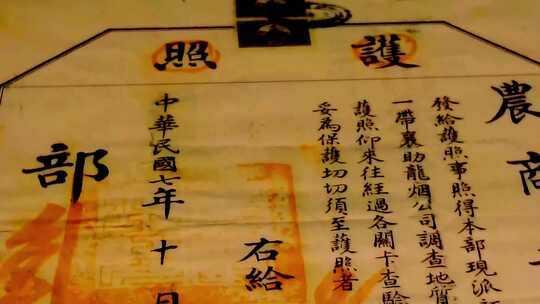 護照
農商部
發給護照事照得本部現派
一帶襄助龍烟公司調查地質
護照仰來往經過各關卡查驗
妥為保護切切須至護照者
右給
中華民國七年十日